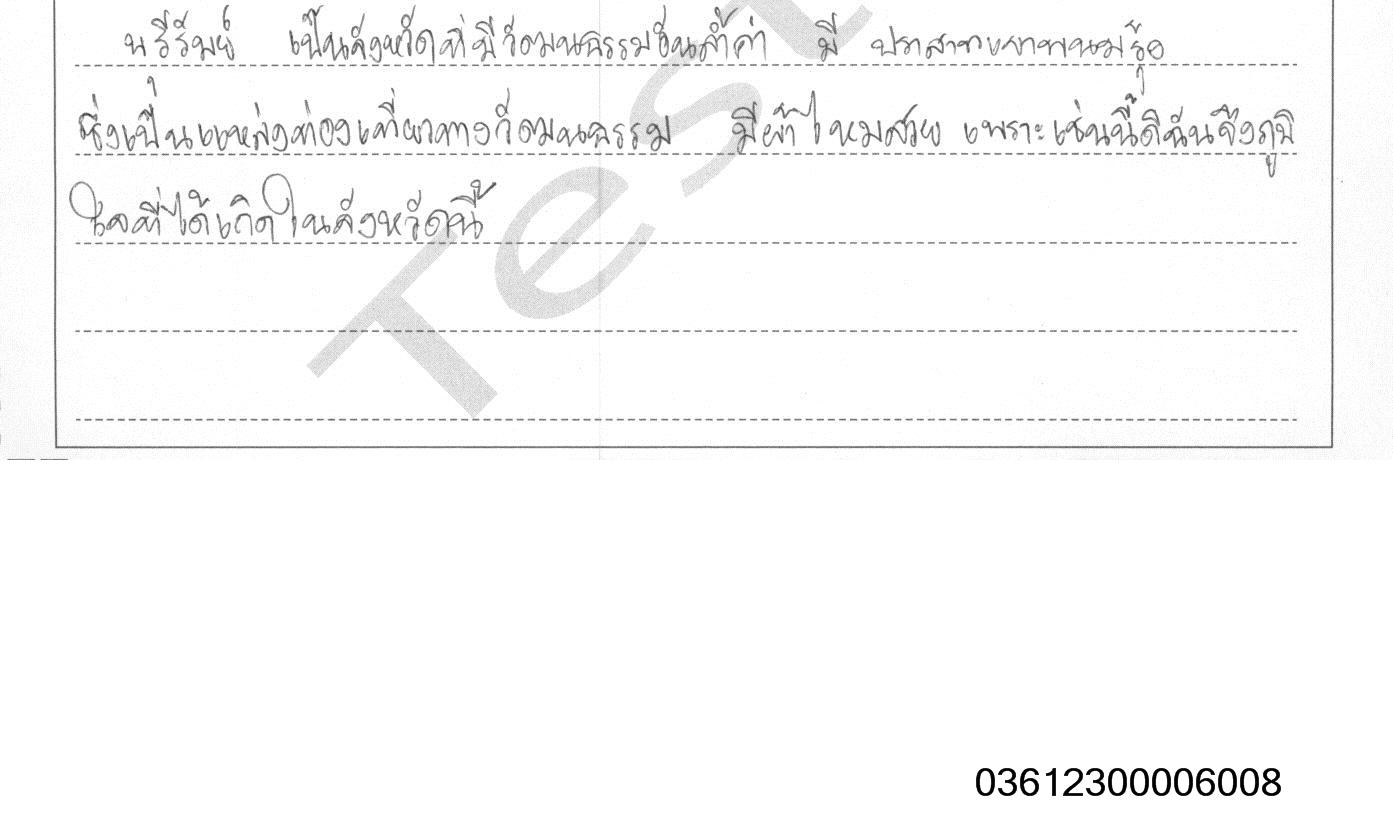 บุรีรัมย์ เป็นจังหวัดที่มีวัฒนธรรมอันล้ำค่า มี ปราสาทเขาพนมรุ้ง
ซึ่งเป็นแหล่งท่องเที่ยวทางวัฒนธรรม มีผ้าไหมสวย เพราะเช่นนี้ดิฉันจึงภูมิ
ใจที่ได้เกิดในจังหวัดนี้
Test
03612300006008